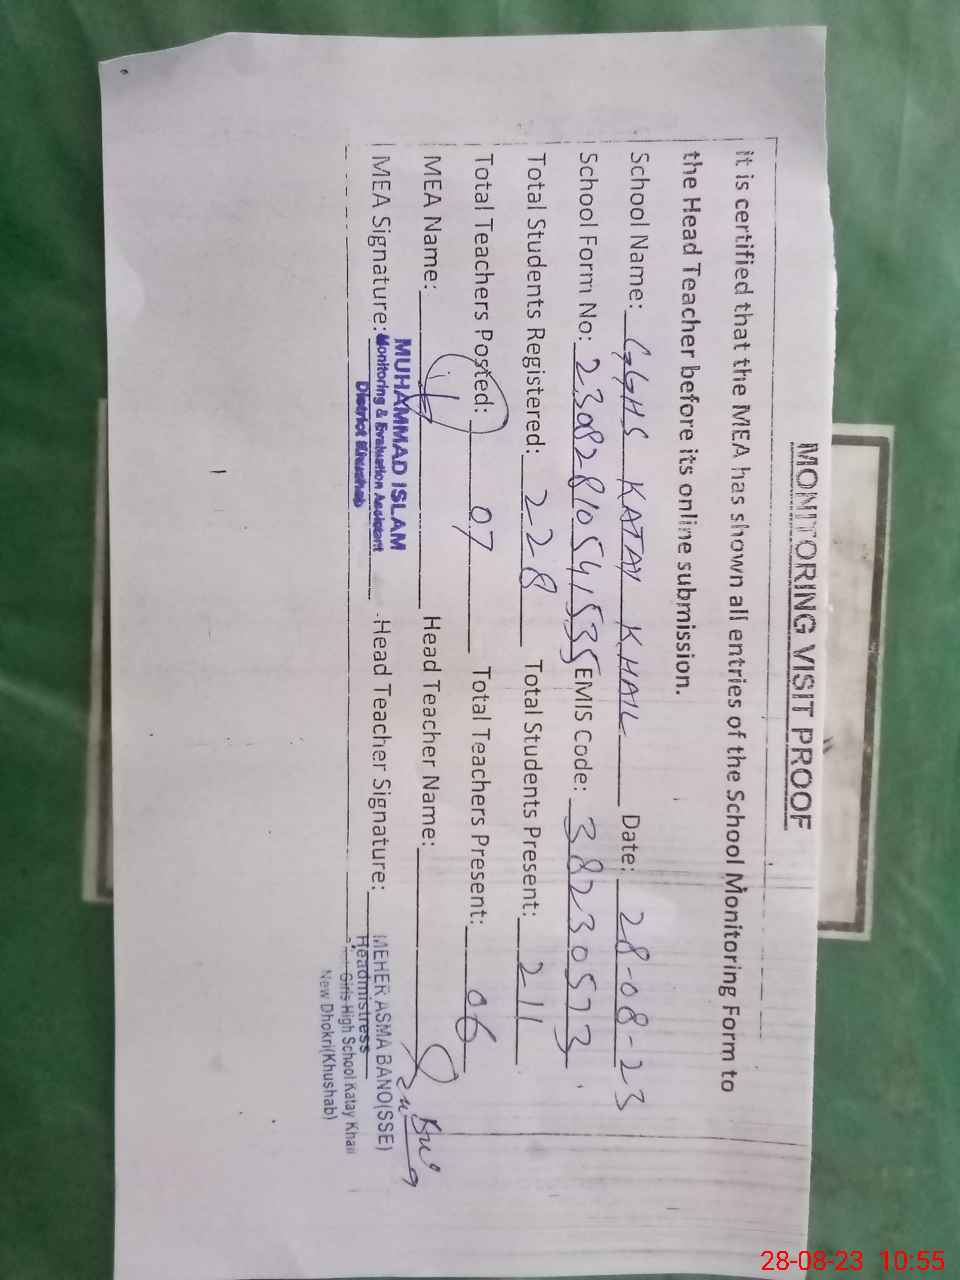 MONITORING VISIT PROOF
it is certified that the MEA has shown all entries of the School Monitoring Form to
the Head Teacher before its online submission.
School Name: GGHS KATAY KHAIL Date: 28-08-23
School Form No: 23082810541535 EMIS Code: 38230573
Total Students Registered: 228 Total Students Present: 211
Total Teachers Posted: 07 Total Teachers Present: 06
MEA Name: Head Teacher Name:
MEA Signature: Head Teacher Signature:
MUHAMMAD ISLAM
Monitoring & Evaluation Assistant
District Khushab
MEHER ASMA BANO(SSE)
Headmistress
Girls High School Katay Khail
New Dhokri(Khushab)
28-08-23 10:55